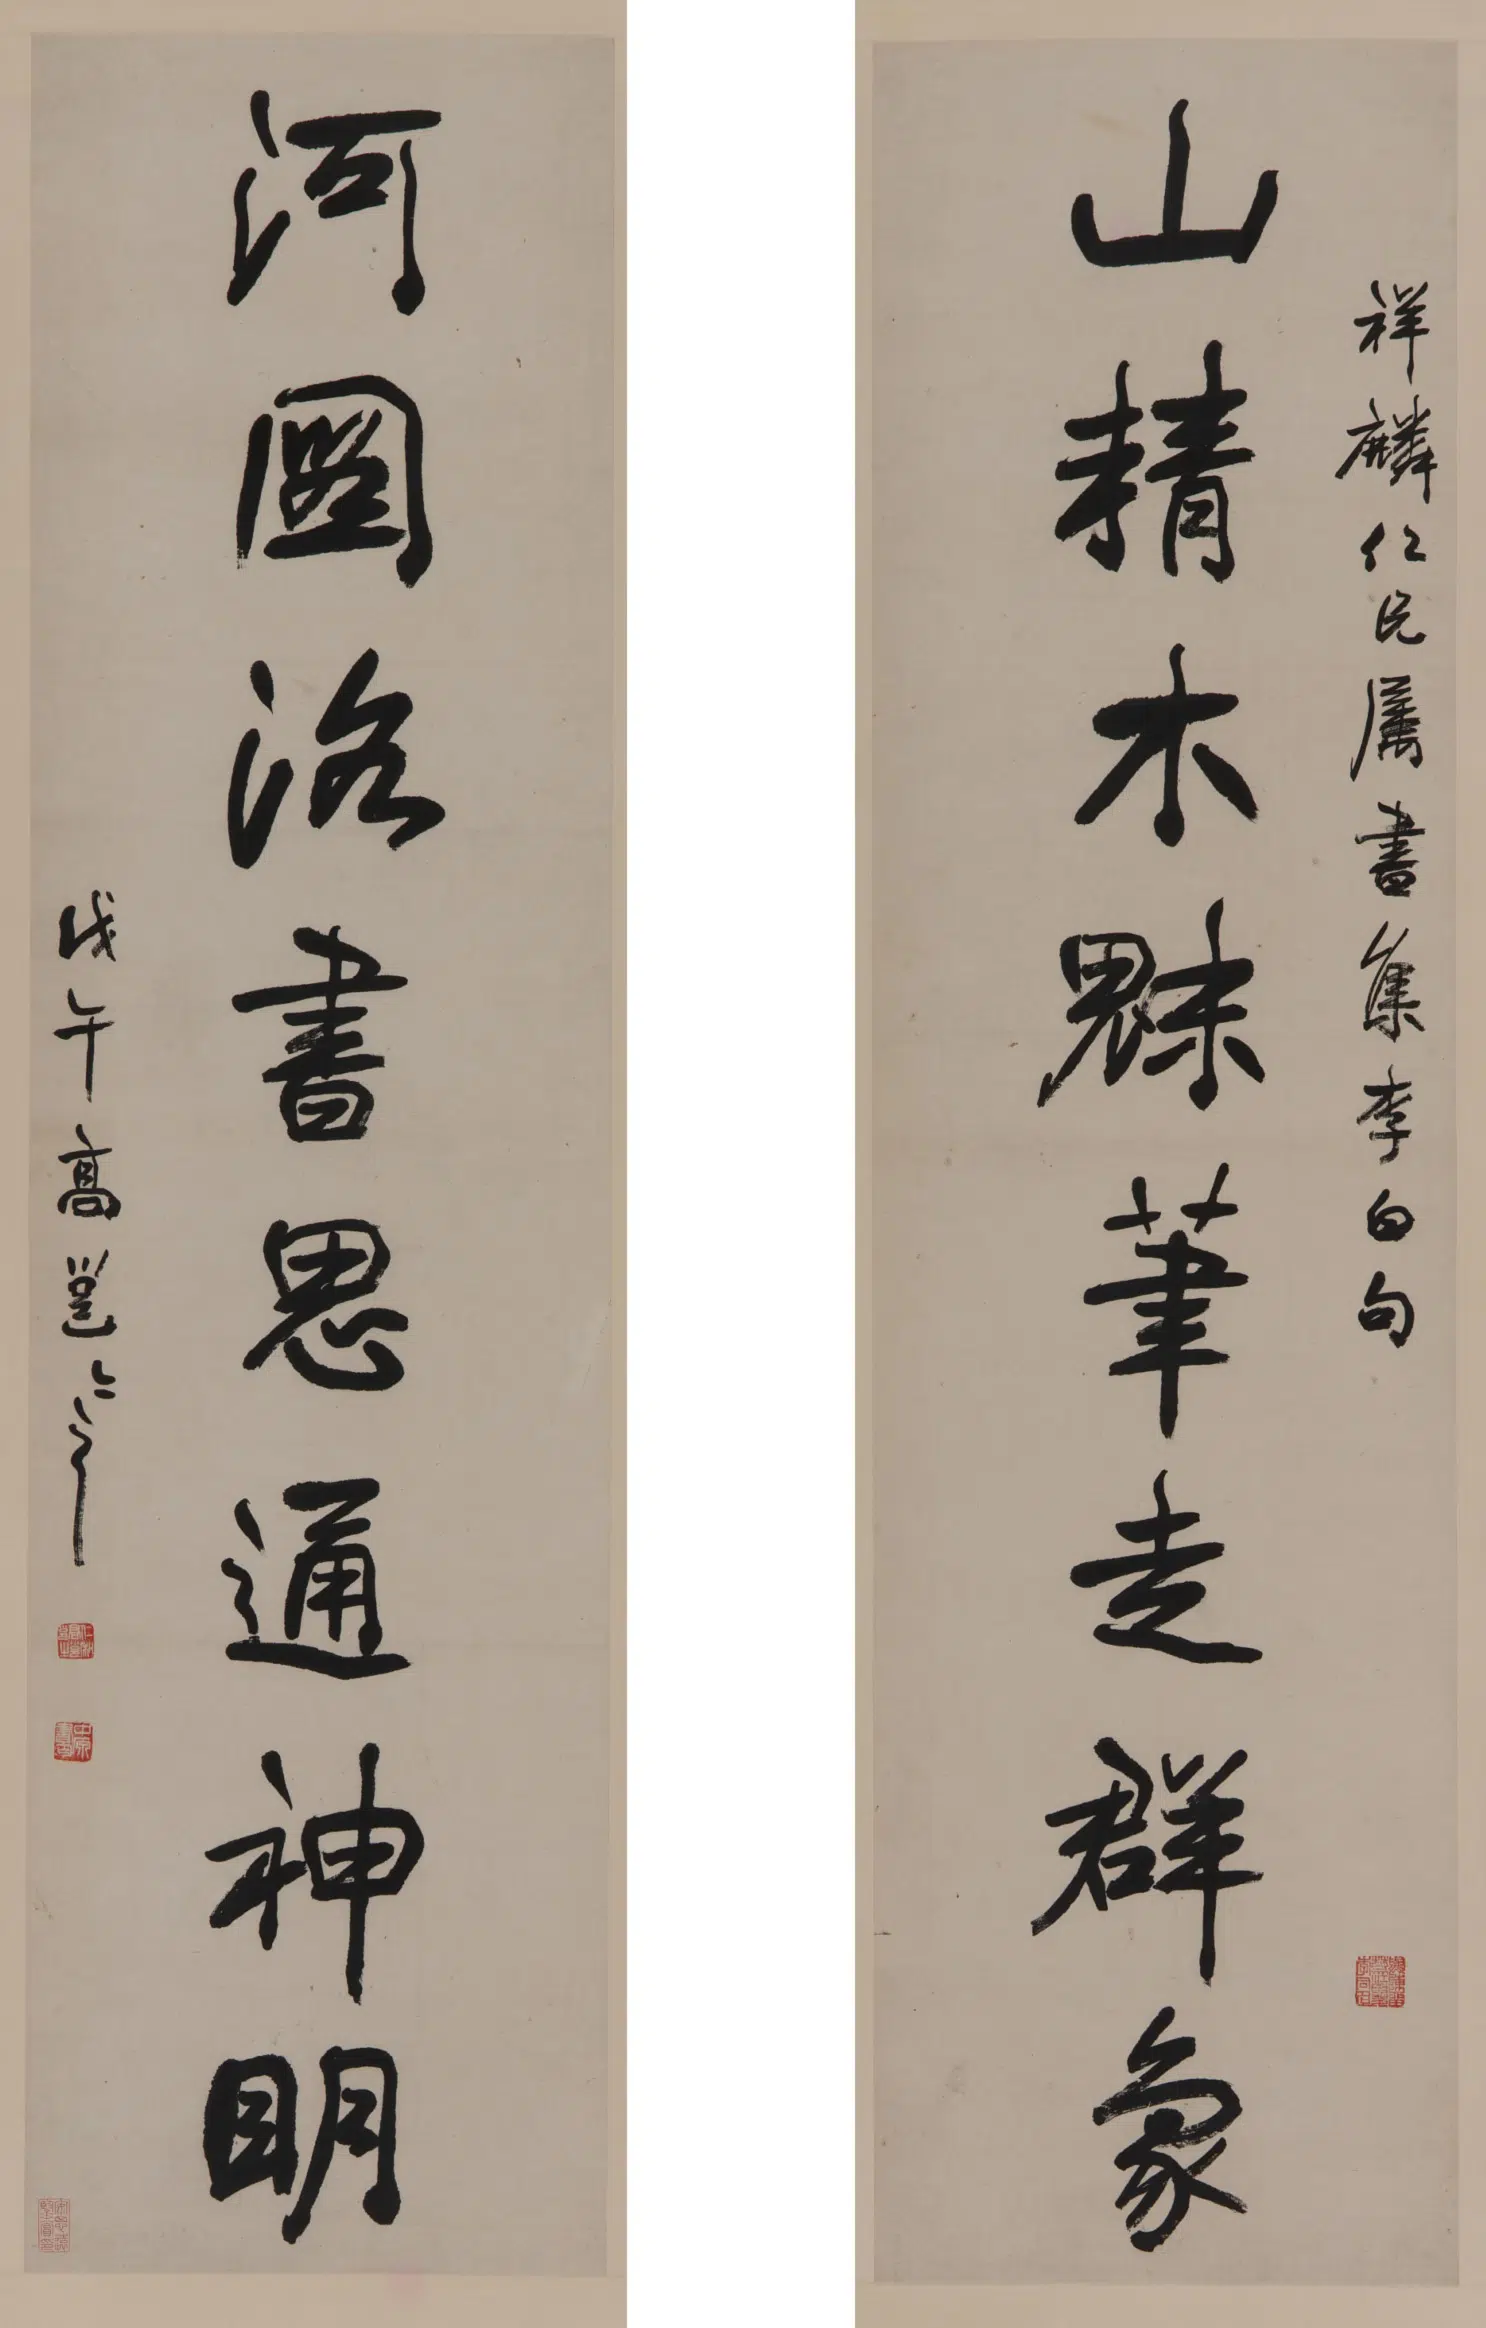 祥麟仁兄属书集李白句
山精木魅筆走群象
河圖洛書思通神明
戊午高邕